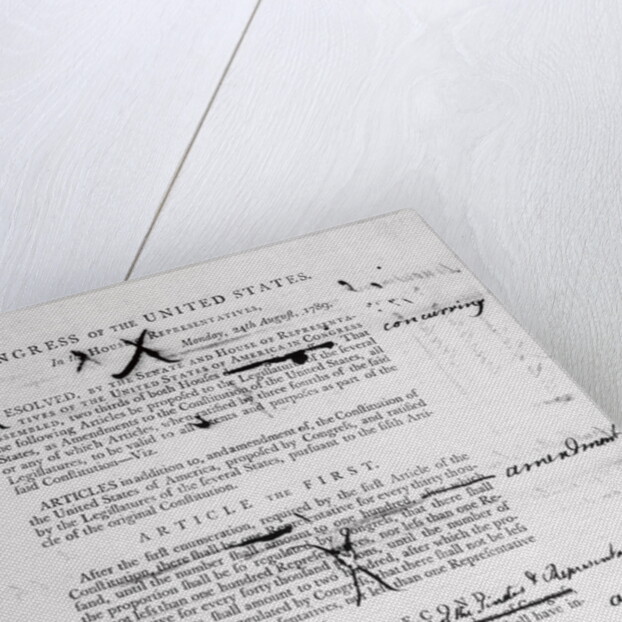 NGRESS OF THE UNITED STATES.
In the HOUSE REPRESENTATIVES,
Monday, 24th August, 1789.
concurring
ESOLVED, BY THE SENATE AND HOUSE OF REPRESENTA-
TIVES OF THE UNITED STATES OF AMERICA IN CONGRESS
SSEMBLED, two thirds of both Houses That
he following Articles be proposed to the Legislatures of the several
States, as Amendments to the Constitution of the United States, all
or any of which Articles, when ratified by three fourths of the said
Legislatures, to be valid to all intents and purposes as part of the
said Constitution—Viz.
ARTICLES in addition to, and amendment of, the Constitution of
the United States of America, proposed by Congress, and ratified
by the Legislatures of the several States, pursuant to the fifth Arti-
cle of the original Constitution.
ARTICLE THE FIRST.
After the first enumeration, required by the first Article of the
Constitution, there shall be one for every thirty thou-
amendment
sand, until the number shall amount to one hundred
the proportion shall be so regulated by Congress, that there shall
not less than one hundred Representatives, nor less than one Re-
tive for every forty thousand persons, until the number of
shall amount to two hundred, after which the pro-
gulated by Congress, that there shall not be less
ntatives, nor less than one Representative
the Senate & Representat
shall have in-